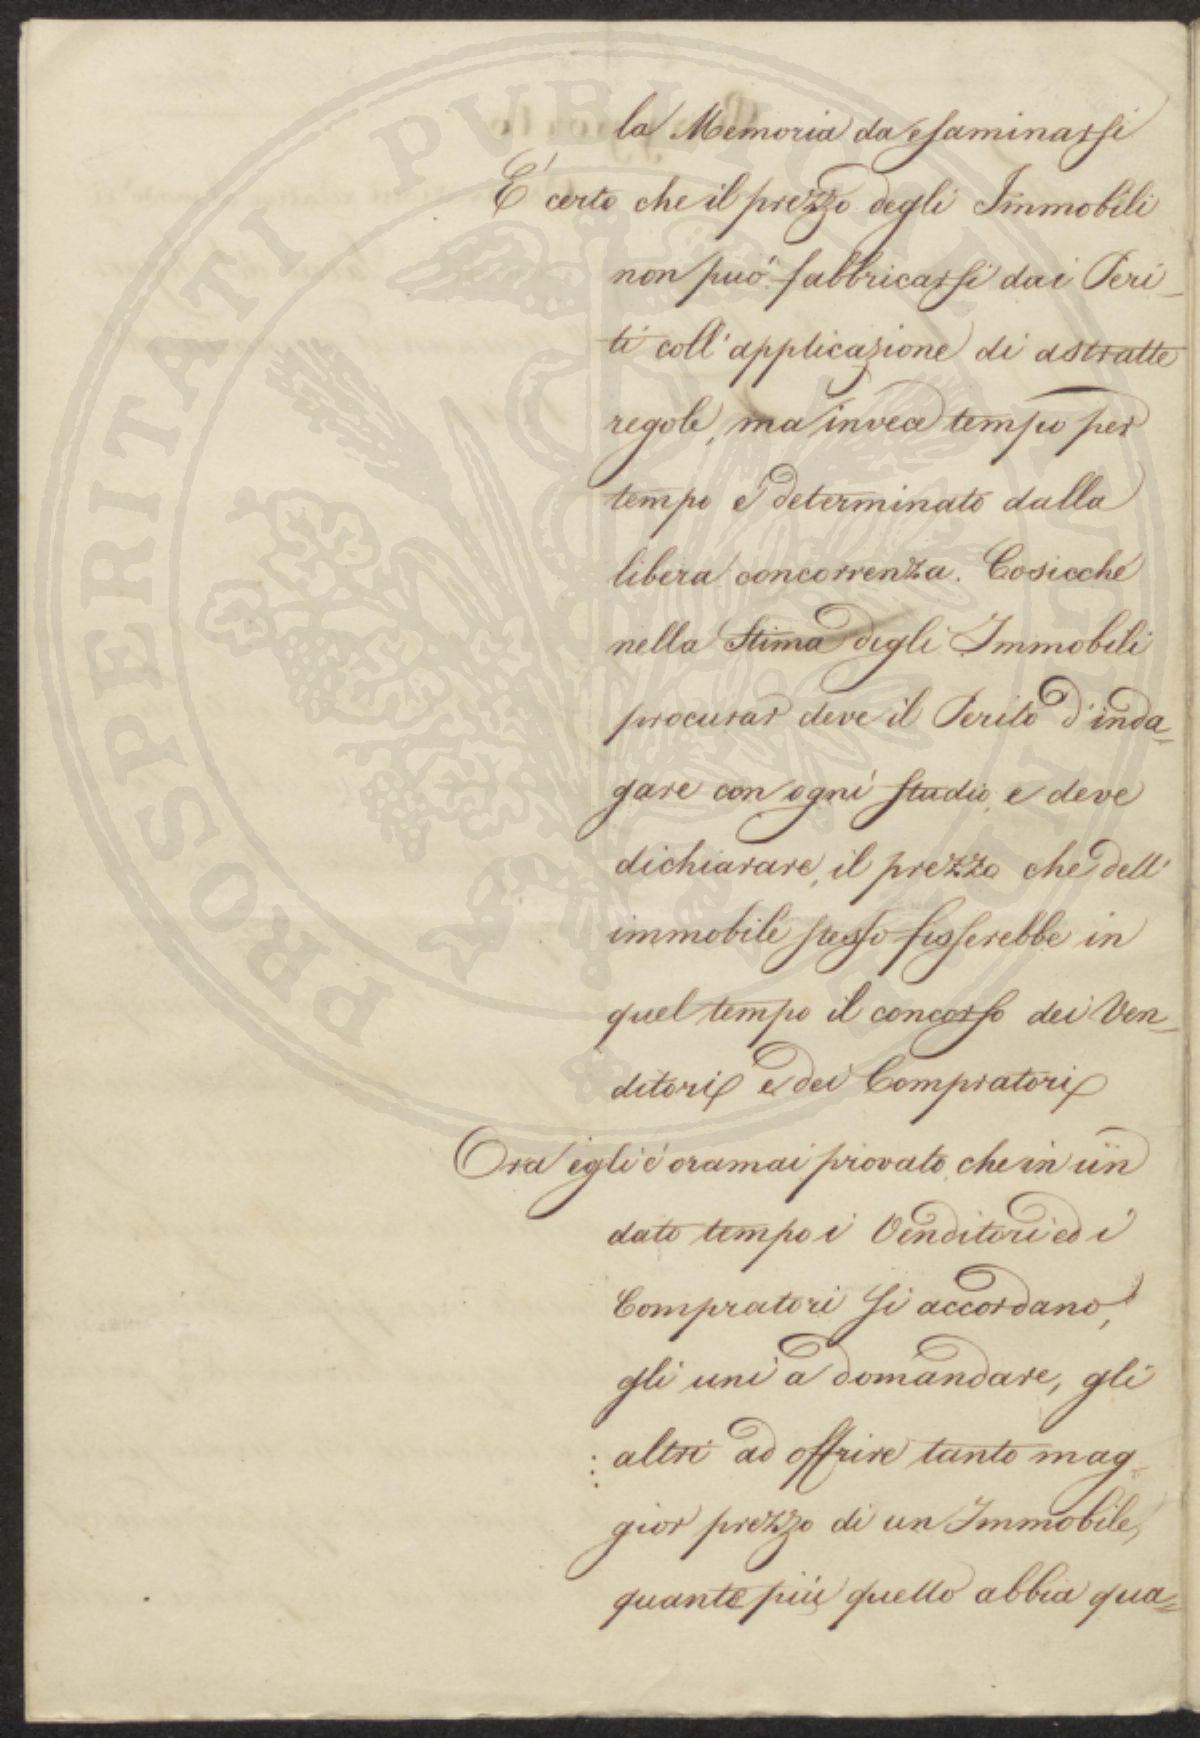 la Memoria da esaminarsi
E' certo che il prezzo degli Immobili
non può fabbricarsi dai Peri-
ti coll'applicazione di astratte
regole, ma invece tempo per
tempo è determinato dalla
libera concorrenza. Cosicchè
nella Stima degli Immobili
procurar deve il Perito d'inda-
gare con ogni studio, e deve
dichiarare, il prezzo che dell'
immobile stesso fisserebbe in
quel tempo il concorso dei Ven-
ditori e dei Compratori
Ora egli è oramai provato, che in un
dato tempo i Venditori ed i
Compratori si accordano,
gli uni a domandare, gli
altri ad offrire tanto mag-
gior prezzo di un Immobile,
quanto più quello abbia qua-
PROSPERITATI PUBLICAE